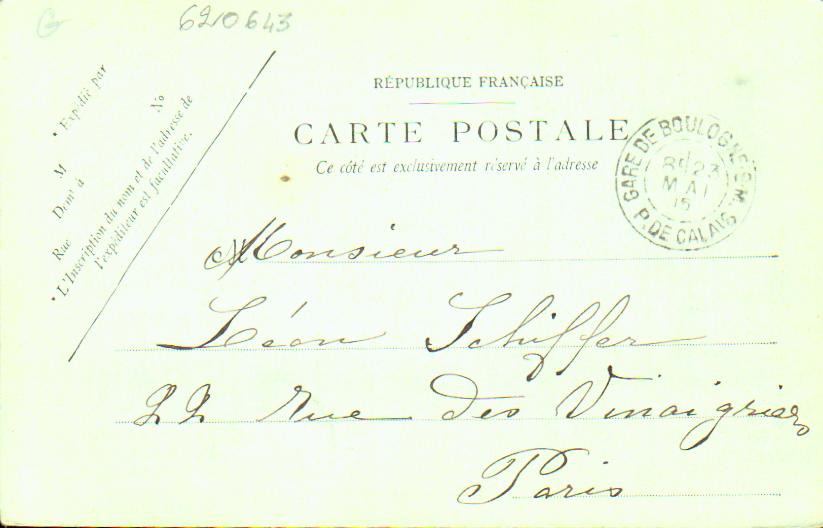 G
6210643
RÉPUBLIQUE FRANÇAISE
CARTE POSTALE
Ce côté est exclusivement réservé à l'adresse
* Expédié par
No
M
Demt à
Rue
* L'Inscription du nom et de l'adresse de
l'expéditeur est facultative.
GARE DE BOULOGNE S. M.
23
MAI
15
P. DE CALAIS
Monsieur
Léon Schiffer
22 Rue des Vinaigriers
Paris